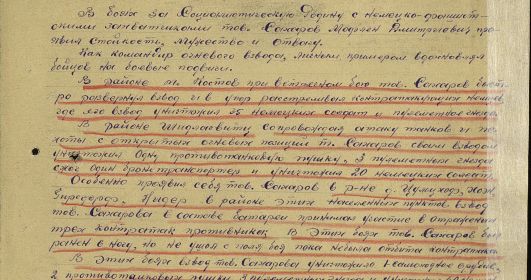 В боях за Социалистическую Родину с немецко-фашист-
скими захватчиками тов. Сахаров Мадчен Дмитриевич про-
явил стойкость, мужество и отвагу.
Как командир огневого взвода, личным примером вдохновлял
бойцов на боевые подвиги.
В районе м. Костов при встречном бою тов. Сахаров быст-
ро развернул взвод и в упор расстреливал контратакующих немцев
где его взвод уничтожил 35 немецких солдат и пулеметное гнездо.
В районе сопровождая атаку танков и пе-
хоты с открытых огневых позиций т. Сахаров своим взводом
уничтожил одну противотанковую пушку, 3 пулеметных гнезда
сжег один бронетранспортер и уничтожил 20 немецких солдат.
Особенно проявил себя тов. Сахаров в р-не д.
в районе этих населенных пунктов взвод
тов. Сахарова в составе батареи принимал участие в отражении
трех контратак противника. В этих боях тов. Сахаров был
ранен в ногу, но не ушел с поля боя пока небыла отбита контратака.
В этих боях взвод тов. Сахарова уничтожил 1 самоходное орудие,
2 противотанковых пушки